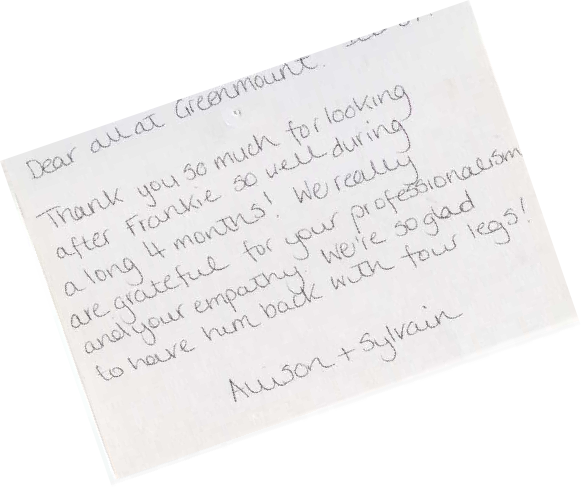 Dear all at Greenmount.
Thank you so much for looking
after Frankie so well during
a long 4 months! We really
are grateful for your professionalism
and your empathy. We're so glad
to have him back with four legs!
Alison + Sylvain